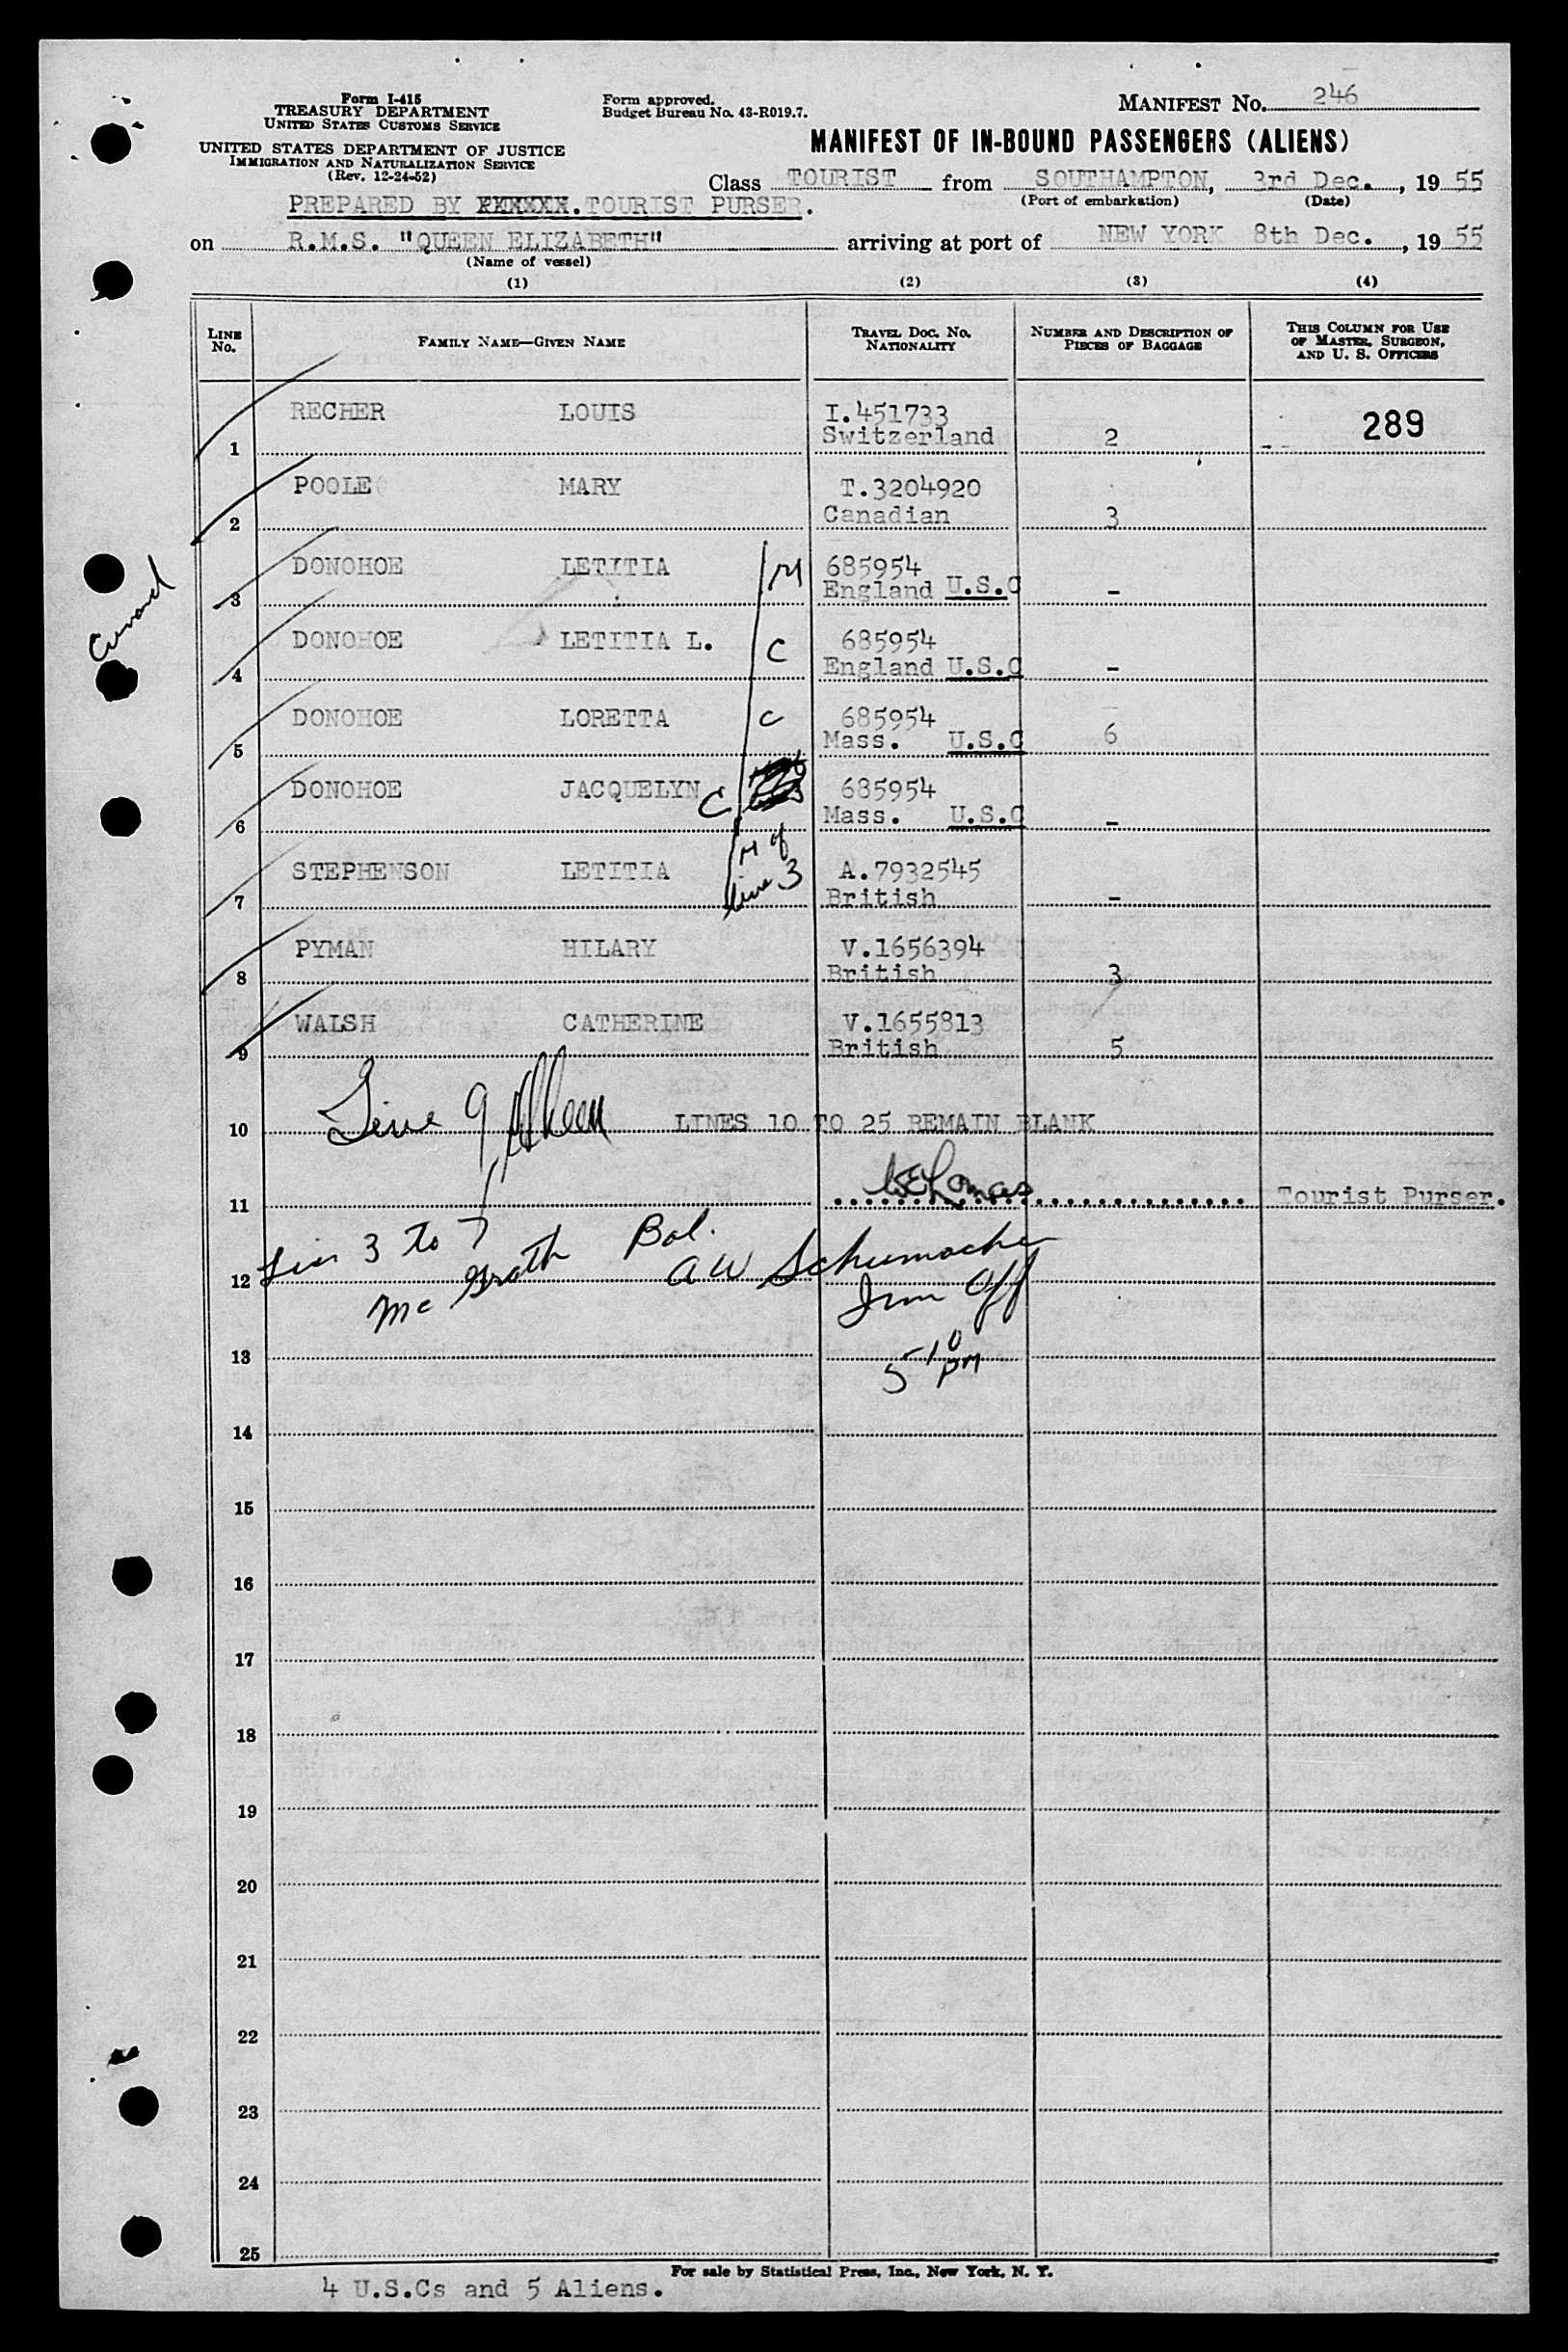 Form I-415
TREASURY DEPARTMENT
UNITED STATES CUSTOMS SERVICE
UNITED STATES DEPARTMENT OF JUSTICE
IMMIGRATION AND NATURALIZATION SERVICE
(Rev. 12-24-52)
Form approved.
Budget Bureau No. 43-R019.7.
MANIFEST NO. 246
MANIFEST OF IN-BOUND PASSENGERS (ALIENS)
Class TOURIST from SOUTHAMPTON, 3rd Dec., 19 55
(Port of embarkation) (Date)
PREPARED BY XXXXXX. TOURIST PURSER.
on R.M.S. "QUEEN ELIZABETH" arriving at port of NEW YORK 8th Dec., 19 55
(Name of vessel)
(1) (2) (3) (4)
LINE No. FAMILY NAME—GIVEN NAME TRAVEL DOC. NO. NATIONALITY NUMBER AND DESCRIPTION OF PIECES OF BAGGAGE THIS COLUMN FOR USE OF MASTER, SURGEON, AND U. S. OFFICERS
RECHER LOUIS I.451733 289
1 Switzerland 2 --
POOLE MARY T.3204920
2 Canadian 3
DONOHOE LETITIA M 685954
3 England U.S.C -
Cunard
DONOHOE LETITIA L. C 685954
4 England U.S.C -
DONOHOE LORETTA C 685954
5 Mass. U.S.C 6
DONOHOE JACQUELYN C 685954
6 Mass. U.S.C -
STEPHENSON LETITIA M of line 3 A.7932545
7 British -
PYMAN HILARY V.1656394
8 British 3
WALSH CATHERINE V.1655813
9 British 5
Line 9
10 LINES 10 TO 25 REMAIN BLANK
11 Tourist Purser.
Lines 3 to 7 Bal.
12 Mc Grath A W Schumacher
Imm Off
13 5-10 PM
14
15
16
17
18
19
20
21
22
23
24
25
For sale by Statistical Press, Inc., New York, N. Y.
4 U.S.Cs and 5 Aliens.